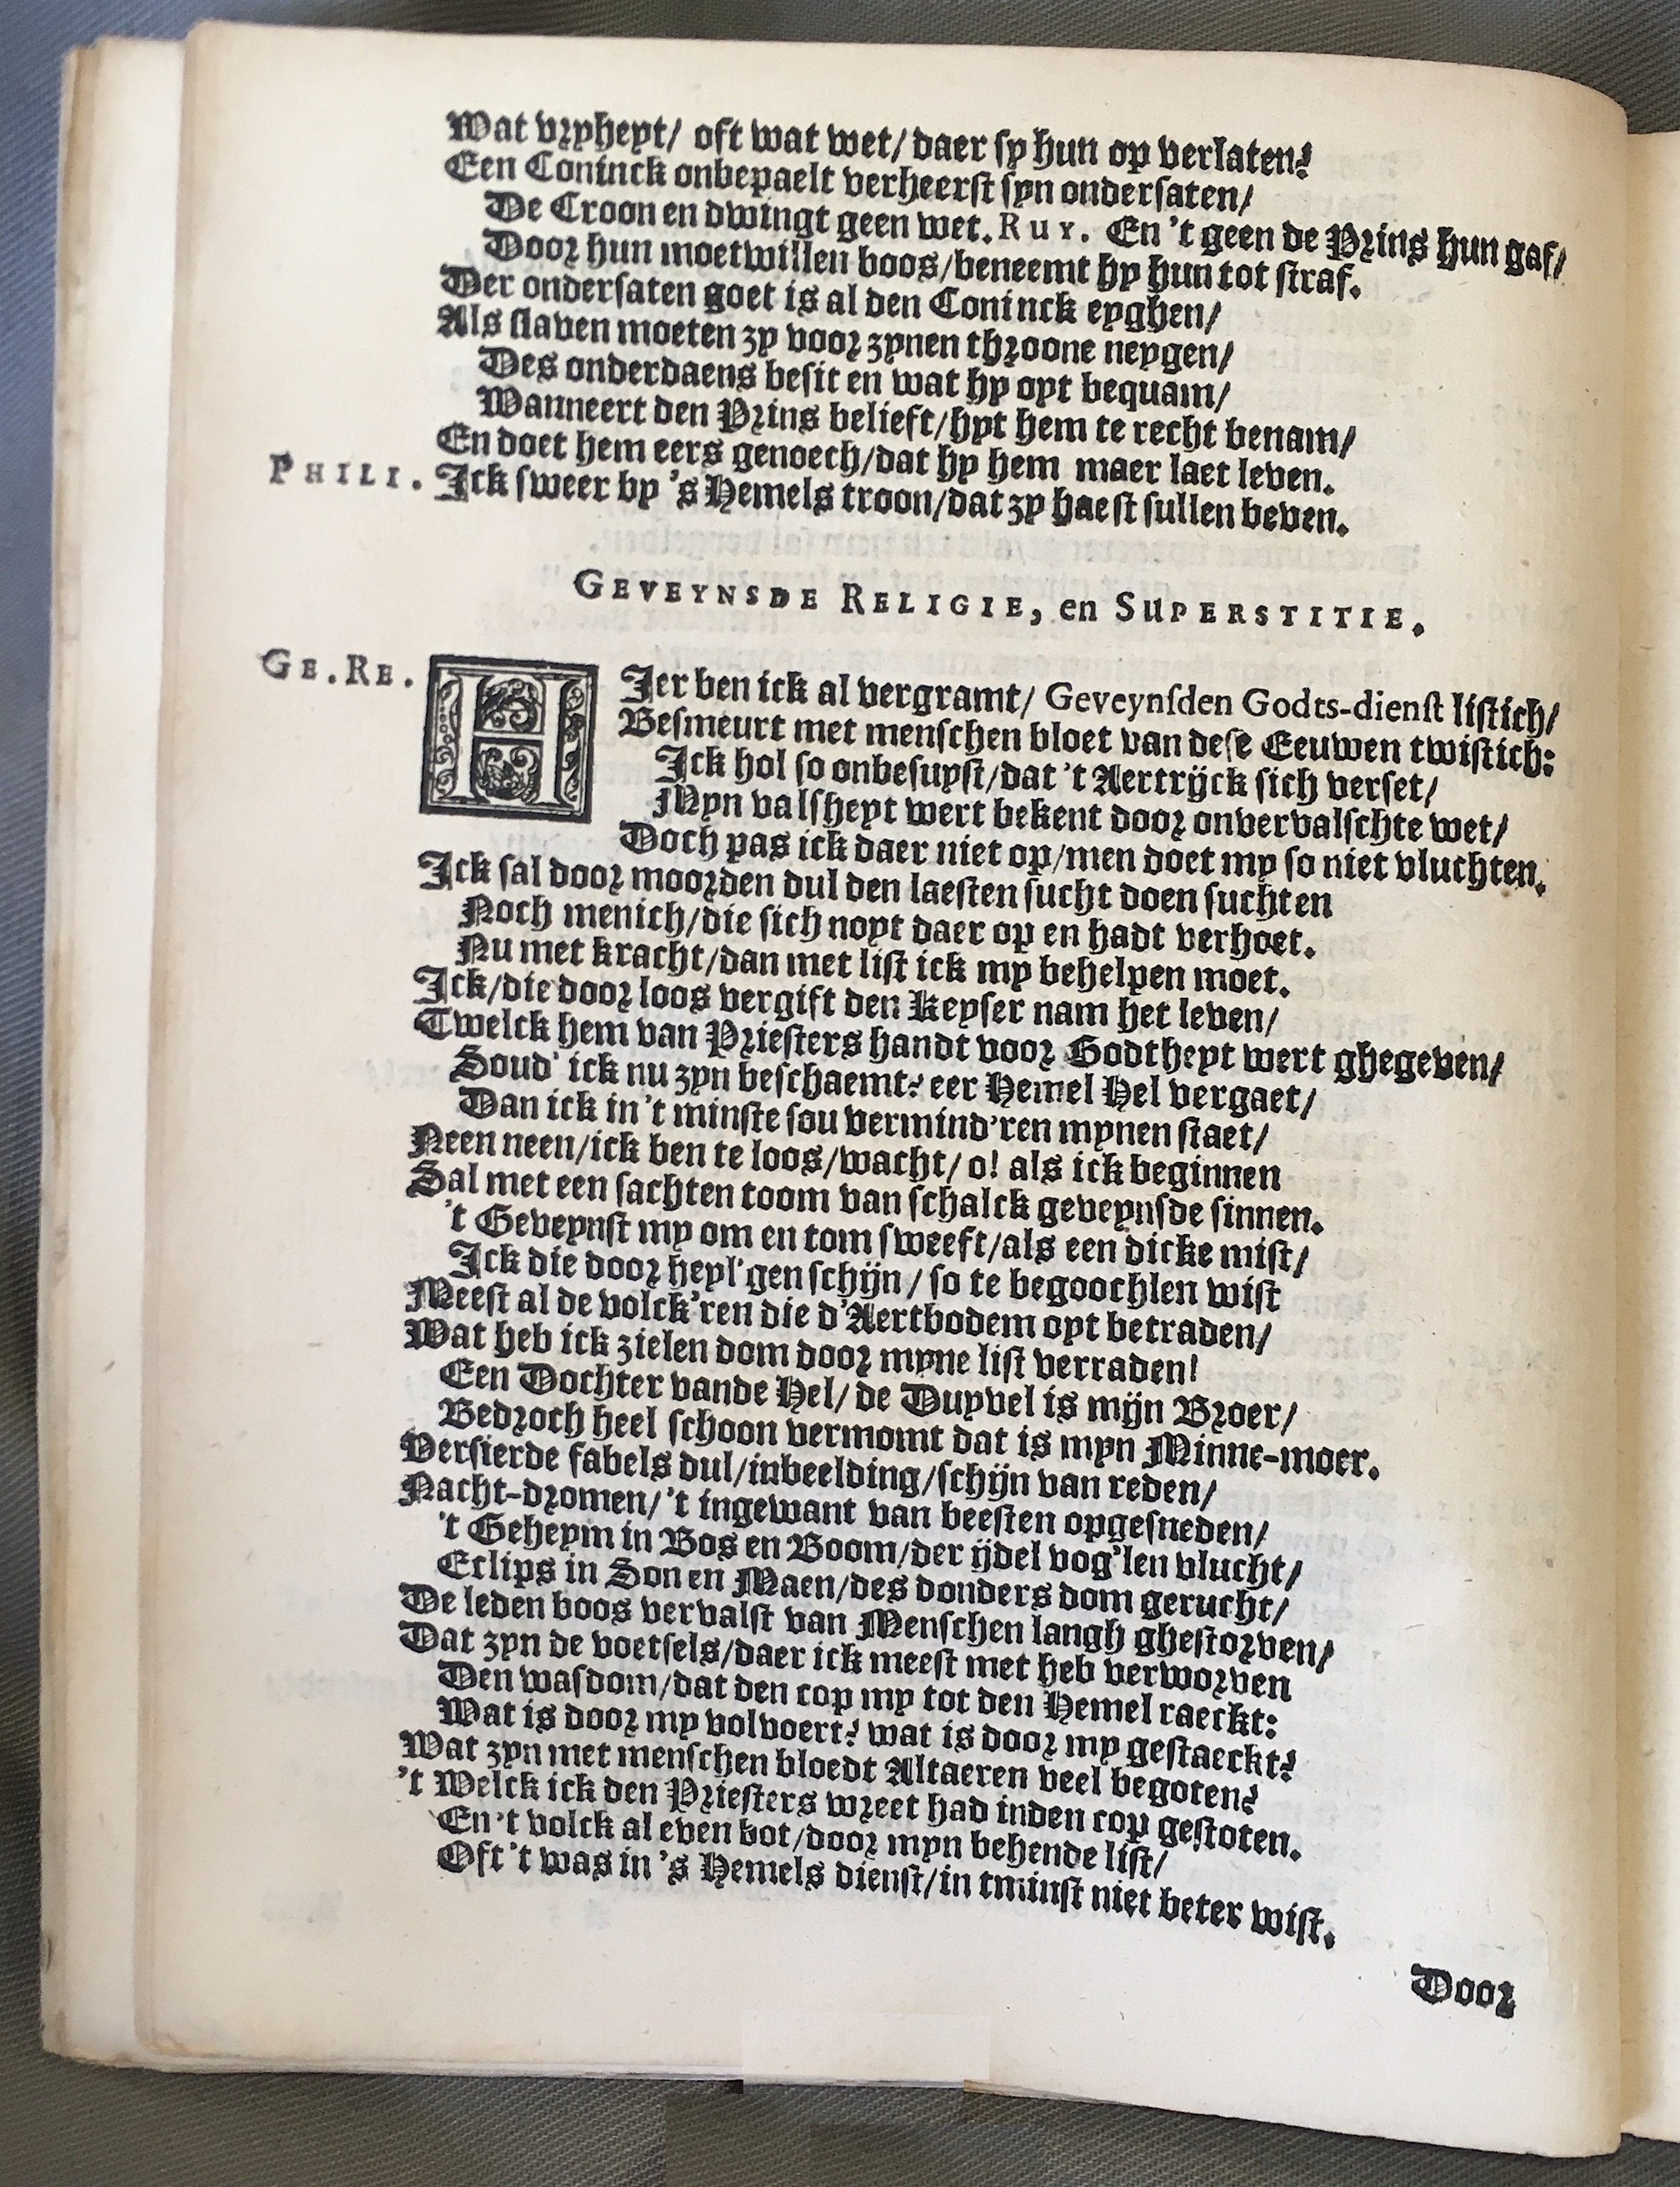 Wat vryheyt/ oft wat wet/ daer sy hun op verlaten?
Een Coninck onbepaelt verheerst syn ondersaten/
De Croon en dwingt geen wet. RUY. En 't geen de Prins hun gaf/
Door hun moetwillen boos/beneemt hy hun tot straf.
Der ondersaten goet is al den Coninck eyghen/
Als slaven moeten zy voor zynen throone neygen/
Des onderdaens besit en wat hy oyt bequam/
Wanneert den Prins belieft/hyt hem te recht benam/
En doet hem eers genoech/dat hy hem maer laet leven.
PHILI. Ick sweer by 's Hemels troon/dat zy haest sullen beven.
GEVEYNSDE RELIGIE, en SUPERSTITIE.
GE.RE. HIer ben ick al vergramt/ Geveynsden Godts-dienst listich/
Besmeurt met menschen bloet van dese Eeuwen twistich:
Ick hol so onbesuyst/dat 't Aertrijck sich verset/
Myn valsheyt wert bekent door onvervalschte wet/
Doch pas ick daer niet op/men doet my so niet vluchten.
Ick sal door moorden dul den laesten sucht doen suchten
Noch menich/die sich noyt daer op en hadt verhoet.
Nu met kracht/dan met list ick my behelpen moet.
Ick/die door loos vergift den Keyser nam het leven/
Twelck hem van Priesters handt voor Godtheyt wert ghegeven/
Soud' ick nu zyn beschaemt? eer Hemel Hel vergaet/
Dan ick in 't minste sou vermind'ren mynen staet/
Neen neen/ick ben te loos/wacht/ o! als ick beginnen
Sal met een sachten toom van schalck geveynsde sinnen.
't Geveynst my om en tom sweeft/als een dicke mist/
Ick die door heyl'gen schijn/ so te begoochlen wist
Meest al de volck'ren die d'Aertbodem oyt betraden/
Wat heb ick zielen dom door myne list verraden!
Een Dochter vande Hel/ de Duyvel is mijn Broer/
Bedroch heel schoon vermomt dat is myn Minne-moer.
Versierde fabels dul/inbeelding/schijn van reden/
Nacht-dromen/'t ingewant van beesten opgesneden/
't Geheym in Bos en Boom/der ijdel vog'len vlucht/
Eclips in Son en Maen/des donders dom gerucht/
De leden boos vervalst van Menschen langh ghestorven/
Dat zyn de voetsels/daer ick meest met heb verworven
Den wasdom/dat den cop my tot den Hemel raeckt:
Wat is door my volvoert? wat is door my gestaeckt?
Wat zyn met menschen bloedt Altaeren veel begoten?
't Welck ick den Priesters wreet had inden cop gestoten.
En 't volck al even bot/door myn behende list/
Oft 't was in 's Hemels dienst/in tminst niet beter wist.
Door